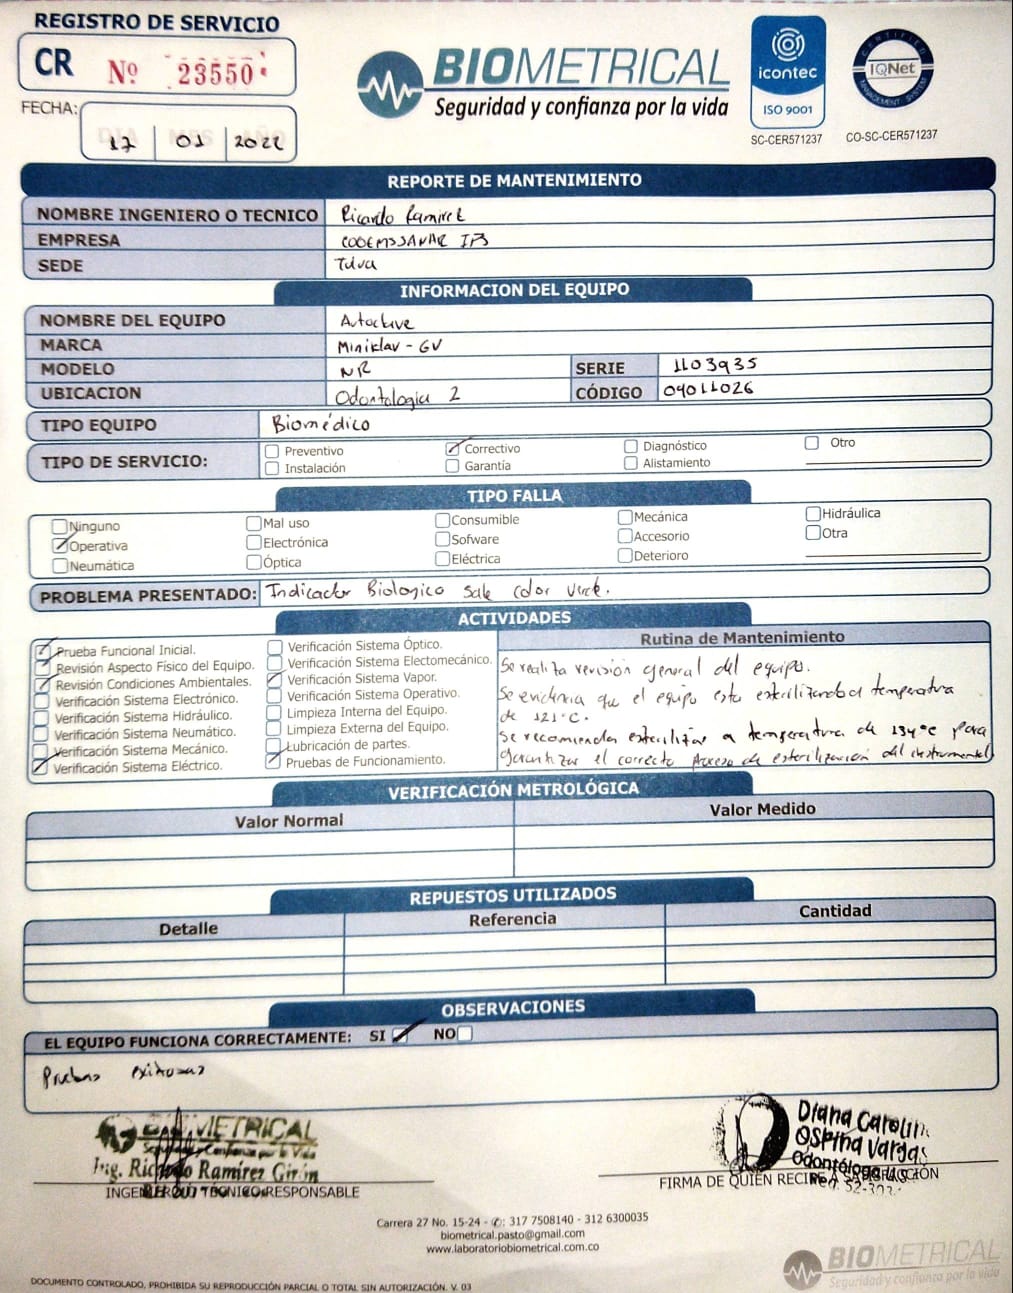 REGISTRO DE SERVICIO
CR Nº 23550
BIOMETRICAL
Seguridad y confianza por la vida
icontec
ISO 9001
SC-CER571237
CERTIFIED
IQNet
MANAGEMENT SYSTEM
CO-SC-CER571237
FECHA:
DIA MES AÑO
17 01 2022
REPORTE DE MANTENIMIENTO
NOMBRE INGENIERO O TECNICO Ricardo Ramirez
EMPRESA CODEMSSANAR IPS
SEDE Tulua
INFORMACION DEL EQUIPO
NOMBRE DEL EQUIPO Autoclave
MARCA Miniklav - GV
MODELO NR SERIE 1103935
UBICACION Odontologia 2 CÓDIGO 04011026
TIPO EQUIPO Biomédico
TIPO DE SERVICIO: Preventivo Correctivo Diagnóstico Otro
Instalación Garantía Alistamiento
TIPO FALLA
Ninguno Mal uso Consumible Mecánica Hidráulica
Operativa Electrónica Sofware Accesorio Otra
Neumática Óptica Eléctrica Deterioro
PROBLEMA PRESENTADO: Indicador Biologico sale color verde.
ACTIVIDADES
Prueba Funcional Inicial.
Revisión Aspecto Físico del Equipo.
Revisión Condiciones Ambientales.
Verificación Sistema Electrónico.
Verificación Sistema Hidráulico.
Verificación Sistema Neumático.
Verificación Sistema Mecánico.
Verificación Sistema Eléctrico.
Verificación Sistema Óptico.
Verificación Sistema Electomecánico.
Verificación Sistema Vapor.
Verificación Sistema Operativo.
Limpieza Interna del Equipo.
Limpieza Externa del Equipo.
Lubricación de partes.
Pruebas de Funcionamiento.
Rutina de Mantenimiento
Se realiza revisión general del equipo.
Se evidencia que el equipo esta esterilizando a temperatura
de 121°C.
Se recomienda esterilizar a temperatura de 134°C para
garantizar el correcto proceso de esterilización del instrumental
VERIFICACIÓN METROLÓGICA
Valor Normal Valor Medido
REPUESTOS UTILIZADOS
Detalle Referencia Cantidad
OBSERVACIONES
EL EQUIPO FUNCIONA CORRECTAMENTE: SI NO
Pruebas exitosas
BIOMETRICAL
Seguridad y Confianza por la Vida
Ing. Ricardo Ramírez Girón
INGENIERO O TÉCNICO RESPONSABLE
Diana Carolina
Ospina Vargas
Odontóloga
FIRMA DE QUIEN RECIBE A SATISFACCIÓN
Carrera 27 No. 15-24 - ✆: 317 7508140 - 312 6300035
biometrical.pasto@gmail.com
www.laboratoriobiometrical.com.co
DOCUMENTO CONTROLADO, PROHIBIDA SU REPRODUCCIÓN PARCIAL O TOTAL SIN AUTORIZACIÓN. V. 03
BIOMETRICAL
Seguridad y confianza por la vida